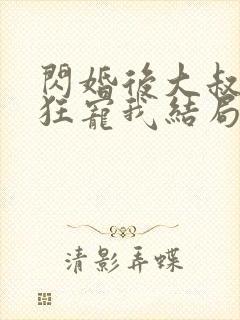 閃婚後大叔
狂寵我結局
清影弄蝶